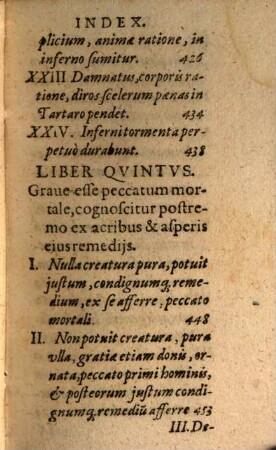 INDEX.
plicium, animæ ratione, in
inferno sumitur. 426
XXIII Damnatus, corporis ra-
tione, diros scelerum pænas in
Tartaro pendet. 434
XXIV. Inferni tormenta per-
petuò durabunt. 438
LIBER QVINTVS.
Graue esse peccatum mor-
tale, cognoscitur postre-
mo ex acribus & asperis
eius remedijs.
I. Nulla creatura pura, potuit
justum, condignumq́, reme-
dium, ex se afferre, peccato
mortali. 448
II. Non potuit creatura, pura
vlla, gratiæ etiam donis, or-
nata, peccato primi hominis,
& posteorum justum condi-
gnumq́, remediũ afferre 453
III. De-